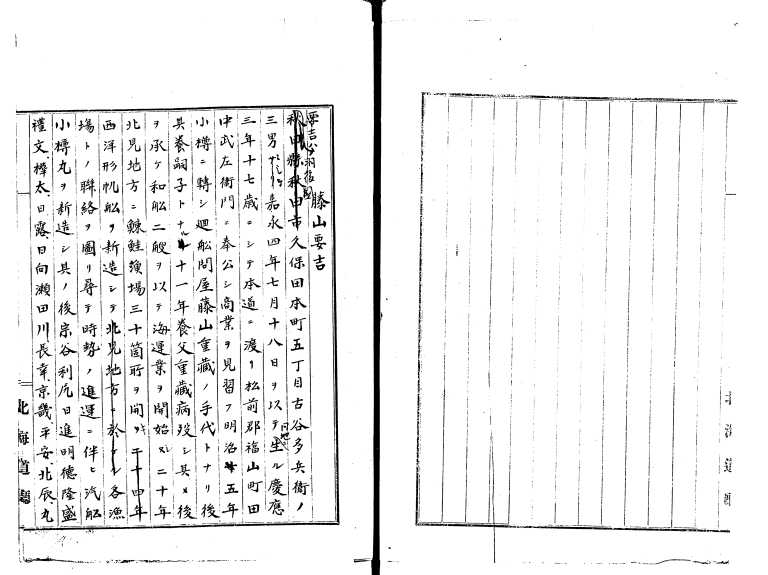 藤山要吉
秋田縣秋田市久保田本町五丁目古谷多兵衛ノ
三男 嘉永四年七月十八日ヲ以テ生ル慶應
三年十七歳ニシテ本道ニ渡リ松前郡福山町田
中武左衛門ニ奉公シ商業ヲ見習フ明治五年
小樽ニ轉シ廻船問屋藤山重藏ノ手代トナリ後
其養嗣子トナル十一年養父重藏病歿シ其ノ後
ヲ承ケ和船二艘ヲ以テ海運業ヲ開始シ二十年
北見地方ニ鰊鮭漁場三十箇所ヲ開キ二十四年
西洋形帆船ヲ新造シテ北見地方ニ於ケル各漁
場トノ聯絡ヲ圖リ尋テ時勢ノ進運ニ伴ヒ汽船
小樽丸ヲ新造シ其ノ後宗谷利尻日進明德隆盛
禮文、樺太、日露、日向瀬田川長幸、京畿、平安、北辰、丸
北海道廳
北海道廳